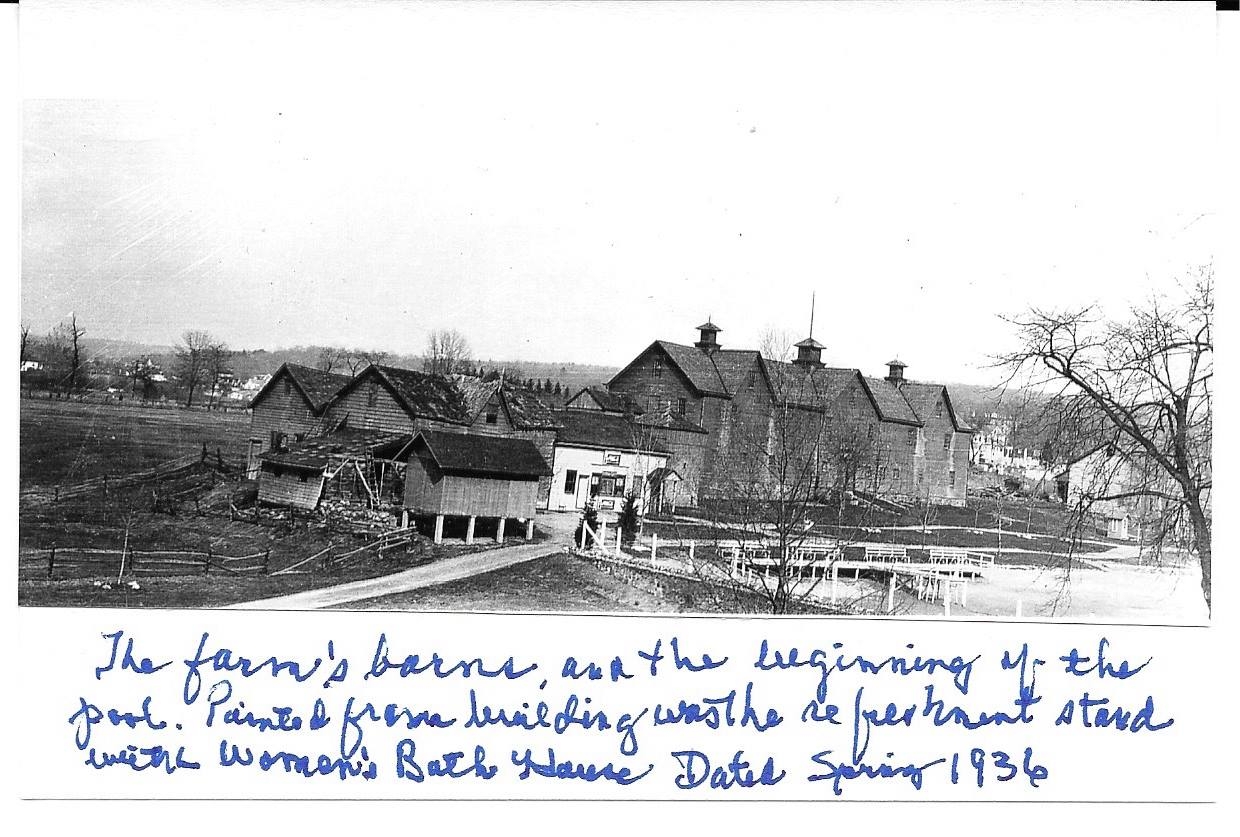 The farm's barns, and the beginning of the
pool. Painted from building was the refreshment stand
with Women's Bath House Dated Spring 1936